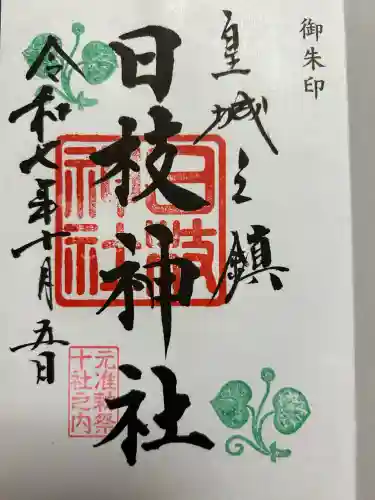 御朱印
皇城之鎮
日枝神社
日枝神社
元准勅祭
十社之内
令和七年十月五日